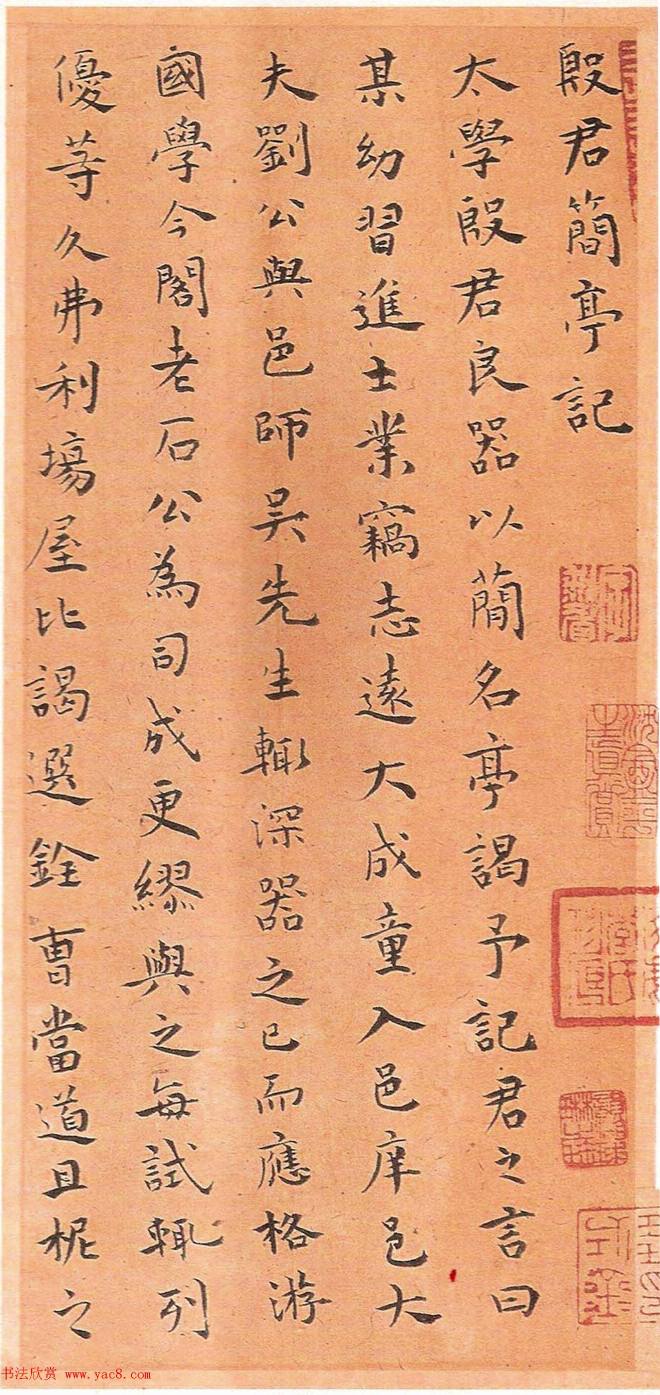 殷君簡亭記
太學殷君良器以蕳名亭謁予記君之言曰
某幼習進士業竊志遠大成童入邑庠邑大
夫劉公與邑師吴先生輙深器之已而應格游
國學今閣老石公為司成更繆與之每試輙列
優等久弗利塲屋比謁選銓曹當道且柅之
书法欣赏 www.yac8.com